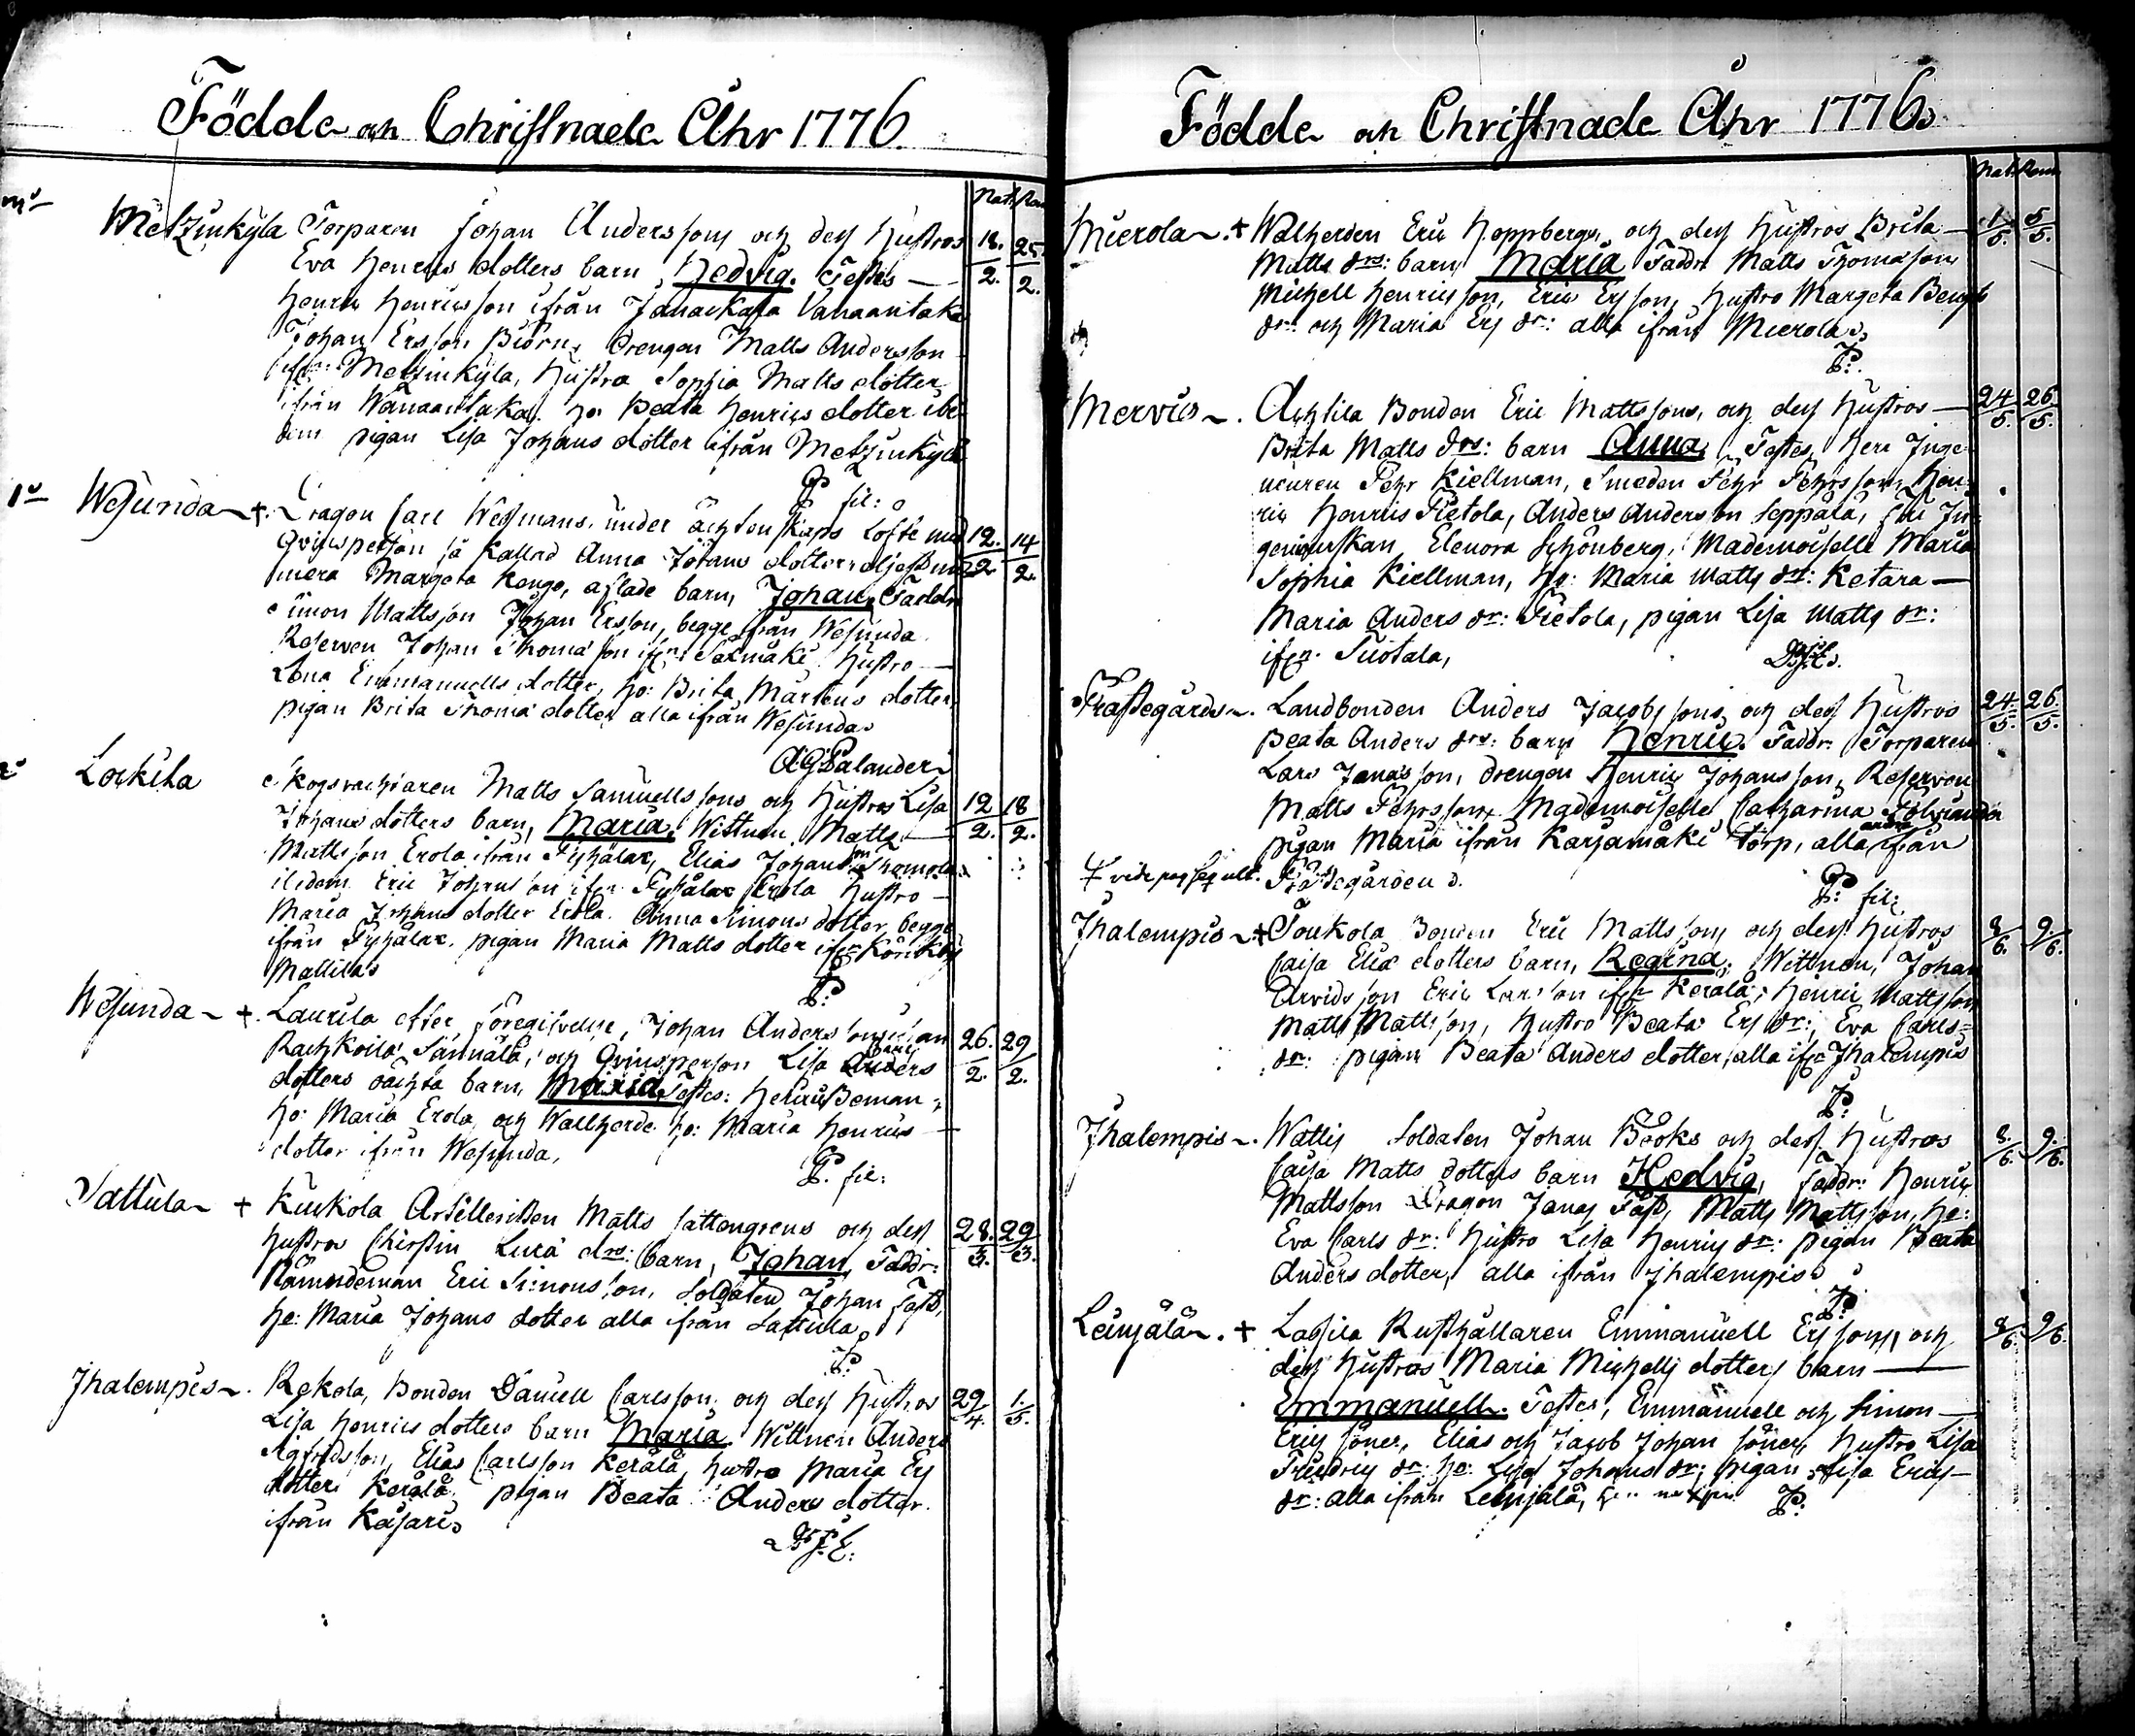 Födde och Christnade Åhr 1776.
Nat. Ren.
Metzinkylä Torparen Johan Anderssons och dess hustros 18. 25.
Eva Henrics dotters barn, Hedvig. Testes — 2. 2.
Henric Henricsson ifrån Janackala Vanaantaka
Johan Ersson Biörn, Drengen Matts Andersson
ifrn: Metzinkylä, hustro Sophia Matts dotter
ifrån Wånaantaka. ho: Beata Henrics dotter ibi
dem pigan Lisa Johans dotter ifrån Metzinkylä
P fil:
Wesunda +. Dragon Carl Wegmans, under ächtenskaps Löfte med 12. 14
Qvinsperson så kallad Anna Johans dotter 2. 2.
mera Margeta Kengo, aflade barn, Johan, Faddr
Simon Mattsson Johan Ersson, begge ifrån Wesunda
Reserven Johan Thomasson ifrn: Salmäki hustro —
Lena Emmanuells dotter, ho: Brita Mårtens dotter
pigan Brita Thomæ dotter alla ifrån Wesunda
AGPalander
Lockila Skogvachtaren Matts Samuellssons och hustros Lisa 12 18
Johans dotters barn, Maria, Wittnen Matts 2. 2.
Mattsson Erola ifrån Tyhälax, Elias Johansson
ibidem Eric Johansson ifrn Tyhälax Erola hustro —
Maria Johans dotter Erola. Anna Simons dotter begge
ifrån Tyhälax. pigan Maria Matts dotter ifrn
Mattila
P:
Wesunda +. Laurila efter föregifvelse, Johan Anderssons 26. 29
Sannala, och Qvinsperson Lisa Anders 2. 2.
dotters oächta barn, Maria Testes: Henric Beman
ho: Maria Erola, och Wallherde ho: Maria Henrics —
dotter ifrån Wesunda,
P. fil:
Sattula + Kuckola Artilleristen Matts Sattengrens och dess 28. 29
hustros Chirstin Lucæ drs: barn, Johan, Faddr: 3. 3.
Nämndeman Eric Simonsson, Soldaten Johan Fast,
he: Maria Johans dotter alla ifrån Sattula,
P:
Ihalempis. Rekola, Bonden Daniell Carlsson, och dess hustros 29 1.
Lisa Henrics dotters barn Maria. Wittnen Anders 4. 5.
Elias Carlsson Kerala, hustro Maria Ers
dotter Kerala, pigan Beata Anders dotter.
ifrån Käsari

Födde och Christnade Åhr 1776.
Nat. Ren
Mierola. + Walherden Eric Hoppbergs, och dess hustros Brita — 1 5
Matts drs: barn, Maria Faddr: Matts Thomasson, 5. 5.
Michell Henricsson, Eric Ersson, hustro Margeta Bengts
dr: och Maria Ers dr: alla ifrån Mierola.
P:
Mervis. Achtila Bonden Eric Mattssons, och dess hustros — 24 26
Brita Matts drs: barn Anna, Testes, Herr Inge- 5. 5.
nieuren Pehr Kiellman, Smeden Pehr Pehrsson, Hen-
ric Henrics Pietola, Anders Andersson Seppälä, Fru In-
genieurskan Elenora Schönberg, Mademoiselle Maria
Sophia Kiellman, ho: Maria Matts dr: Ketara —
Maria Anders dr: Pietola, pigan Lisa Matts dr:
ifrn.
Prästegårds. Landbonden Anders Jacobssons och dess hustros 24. 26.
Beata Anders drs: barn Henric. Faddr: Torparen 5. 5.
Lars Jonasson, drengen Henric Johansson, Reserven
Matts Pehrsson, Mademoiselle Catharina Tolvanda
pigan Maria ifrån Karjamäki Torp, alla andra ifrån
vide pag seq ult. Prästegården.
P: fil:
Ihalempis + Toukola Bonden Eric Mattssons och dess hustros 8 9
Caisa Eliæ dotters barn, Regina. Wittnen, Johan 6. 6.
Arvidsson Eric Larsson ifrn Kerala, Henric Mattsson
Matts Mattsson, hustro Beata Ers dr:, Eva Carls-
dr: pigan Beata Anders dotter, alla ifrn Ihalempis
P:
Ihalempis. Wattis Soldaten Johan Bööks och dess hustros 8. 9.
Caisa Matts dotters barn Hedvig, faddr: Henric 6. 6.
Mattsson Dragon Jonas Fast, Matts Mattsson, he:
Eva Carls dr: hustro Lisa Henrics dr: pigan Beata
Anders dotter, alla ifrån Ihalempis
P:
Leinjälä. + Lassila Rusthållaren Emmanuell Erssons, och 8 9
dess hustros Maria Michells dotters barn — 6. 6.
Emmanuell. Testes, Emmanuell och Simon —
Erics söner, Elias och Jacob Johan söner, hustro Lisa
Friedrics dr: ho: Lisa Johans dr: pigan Lisa Erics —
dr: alla ifrån Leinjälä,
P: